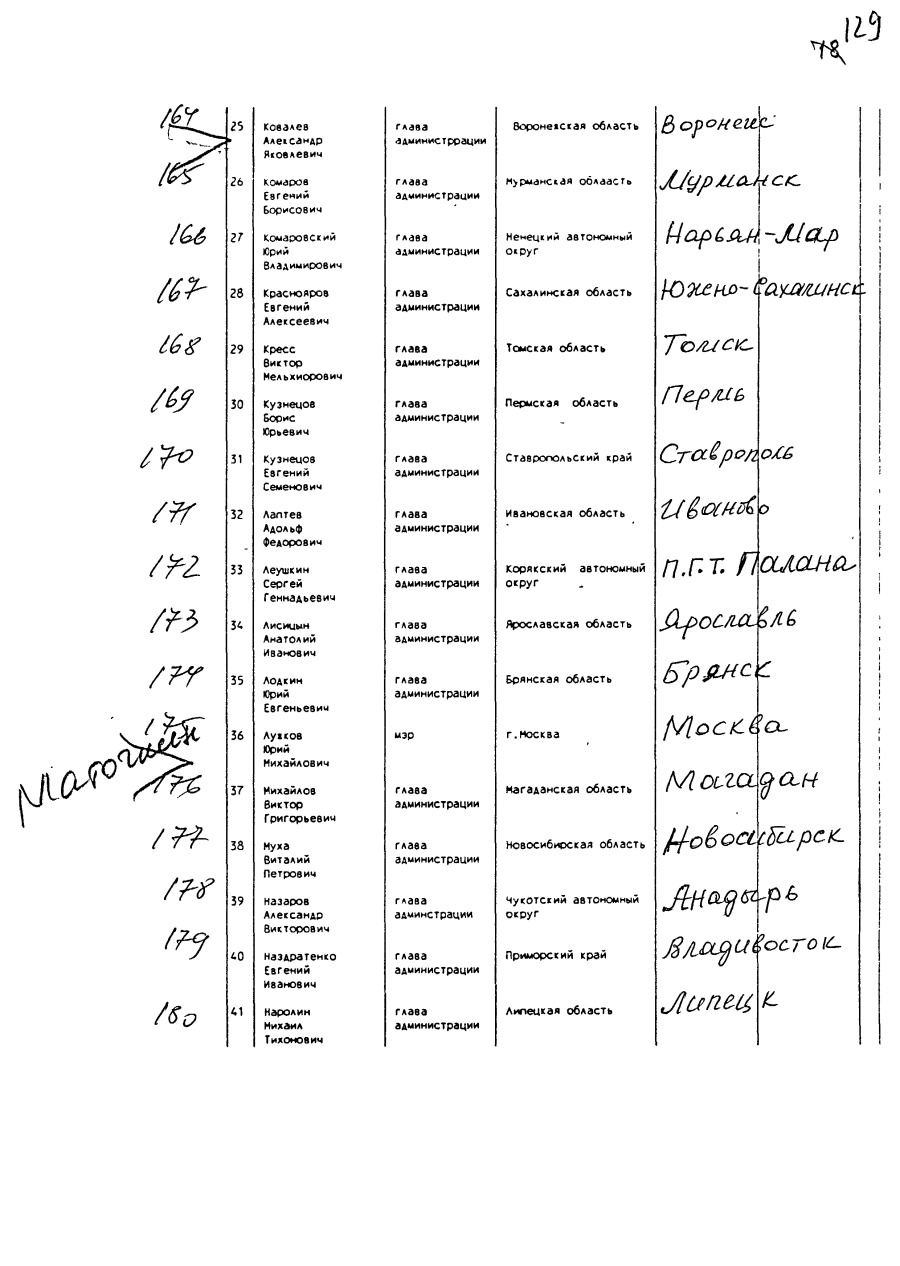 129
78
164 25 Ковалев глава Воронежская область Воронеж
Александр администррации
Яковлевич
165 26 Комаров глава Мурманская облаасть Мурманск
Евгений администрации
Борисович
166 27 Комаровский глава Ненецкий автономный Нарьян-Мар
Юрий администрации округ
Владимирович
167 28 Краснояров глава Сахалинская область Южено-Сахалинск
Евгений администрации
Алексеевич
168 29 Кресс глава Томская область Томск
Виктор администрации
Мельхиорович
169 30 Кузнецов глава Пермская область Пермь
Борис администрации
Юрьевич
170 31 Кузнецов глава Ставропольский край Ставрополь
Евгений администрации
Семенович
171 32 Лаптев глава Ивановская область Иваново
Адольф администрации
Федорович
172 33 Леушкин глава Корякский автономный п.г.т. Палана
Сергей администрации округ
Геннадьевич
173 34 Лисицын глава Ярославская область Ярославль
Анатолий администрации
Иванович
174 35 Лодкин глава Брянская область Брянск
Юрий администрации
Евгеньевич
175 36 Лужков мэр г.Москва Москва
Юрий
Михайлович
176 37 Михайлов глава Магаданская область Магадан
Виктор администрации
Григорьевич
177 38 Муха глава Новосибирская область Новосибирск
Виталий администрации
Петрович
178 39 Назаров глава Чукотский автономный Анадырь
Александр админстрации округ
Викторович
179 40 Наздратенко глава Приморский край Владивосток
Евгений администрации
Иванович
180 41 Наролин глава Липецкая область Липецк
Михаил администрации
Тихонович